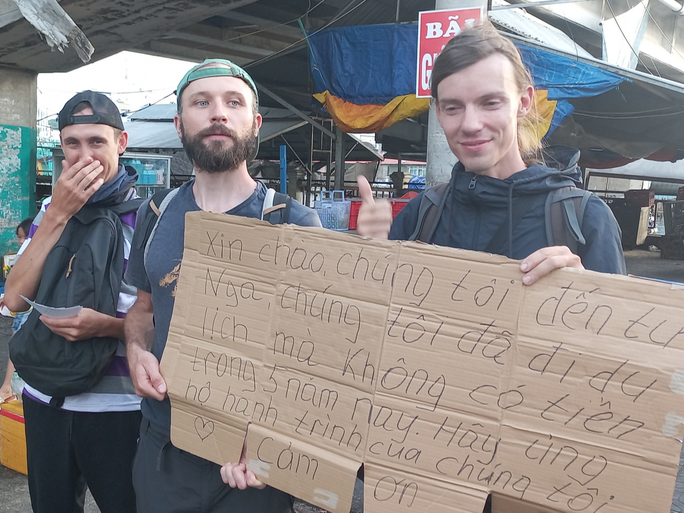 BÃI
Xin chào, chúng tôi đến từ
Nga chúng tôi đã đi du
lịch mà không có tiền
trong 5 năm nay. Hãy ủng
hộ hành trình của chúng tôi
♡ Cảm ơn